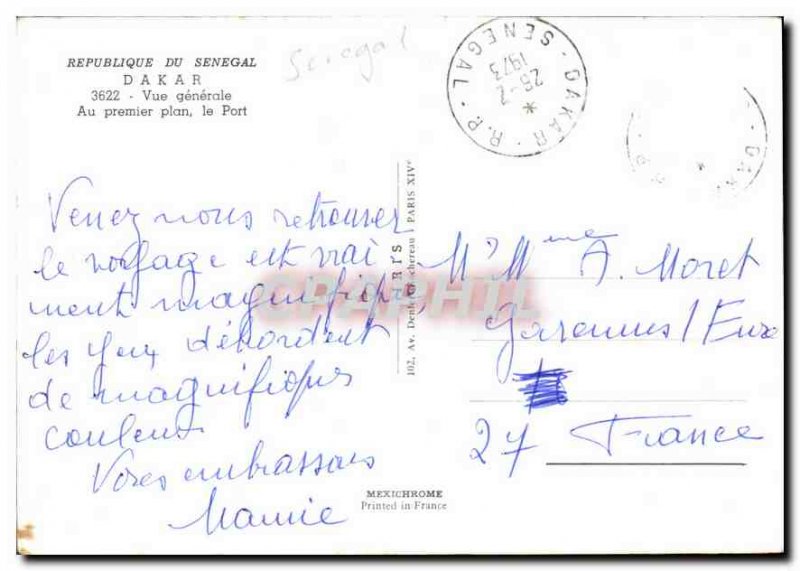 REPUBLIQUE DU SENEGAL
DAKAR
3622 - Vue générale
Au premier plan, le Port
Senegal
DAKAR - R.P. - SENEGAL
26-2
1973
DAKA
R.P.
Venez nous retrouver
le voyage est vrai
ment magnifique
les yeux débordent
de magnifiques
couleurs
Vous embrassons
Mamie
IRIS
102, Av. Denfert Rochereau PARIS XIVe
CPAPHIL
Mr Mme A. Moret
Garennes / Eure
27 France
MEXICHROME
Printed in France